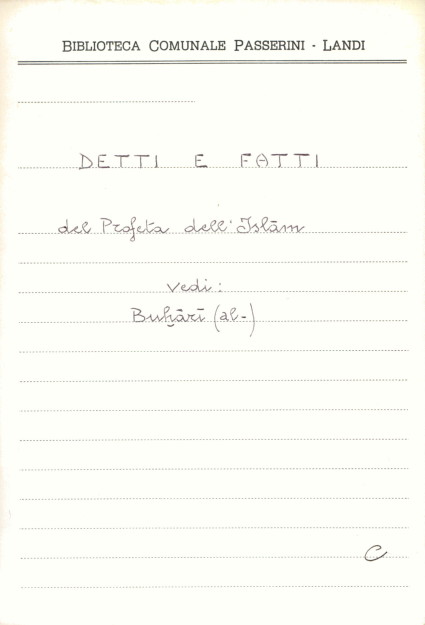 BIBLIOTECA COMUNALE PASSERINI - LANDI
DETTI E FATTI
del Profeta dell'Islām
vedi:
Buḫārī (al-)
C